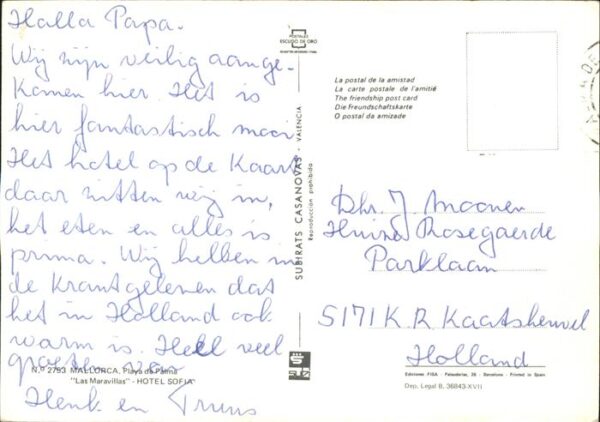 Halla Papa.
Wij zijn veilig aange-
komen hier. Het is
hier fantastisch mooi
Het hotel op de Kaart
daar zitten wij in,
het eten en alles is
prima. Wij hebben in
de Krant gelezen dat
het in Holland ook
warm is. Heel veel
groeten van
Henk en Truus
N.º 2793 MALLORCA. Playa de Palma
"Las Maravillas" - HOTEL SOFIA
POSTALES
ESCUDO DE ORO
SUBIRATS CASANOVAS - VALENCIA
Reproducción prohibida
La postal de la amistad
La carte postale de l'amitié
The friendship post card
Die Freundschaftskarte
O postal da amizade
Dhr. J. Moonen
Huize Rosegaerde
Parklaan
5171 K R Kaatsheuvel
Holland
Ediciones FISA - Palaudarias, 26 - Barcelona - Printed in Spain
Dep. Legal B. 36843-XVII